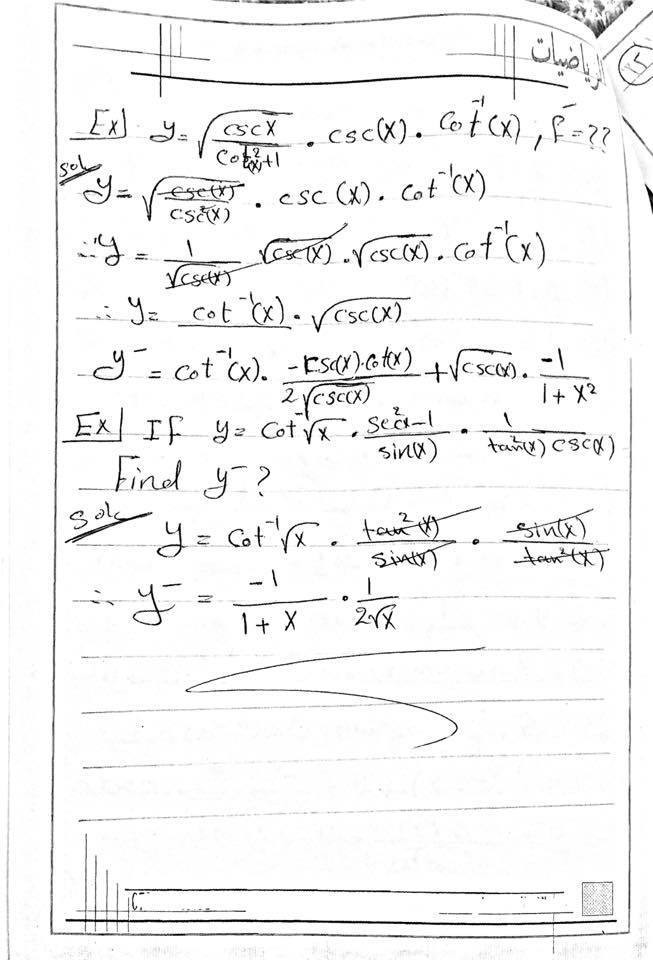 الرياضيات
Ex] y = √(csc x / cot²(x)+1) · csc(x) · cot⁻¹(x), f⁻ = ??
sol
y = √(csc(x) / csc²(x)) · csc(x) · cot⁻¹(x)
∴ y = 1/√csc(x) √csc(x) · √csc(x) · cot⁻¹(x)
∴ y = cot⁻¹(x) · √csc(x)
y⁻ = cot⁻¹(x) · -csc(x)·cot(x) / 2√csc(x) + √csc(x) · -1 / 1+x²
Ex] If y = cot⁻¹√x · sec²x-1 / sin(x) · 1 / tan²(x) csc(x)
Find y⁻?
sol
y = cot⁻¹√x · tan²(x) / sin(x) · sin(x) / tan²(x)
∴ y⁻ = -1 / 1+x · 1 / 2√x